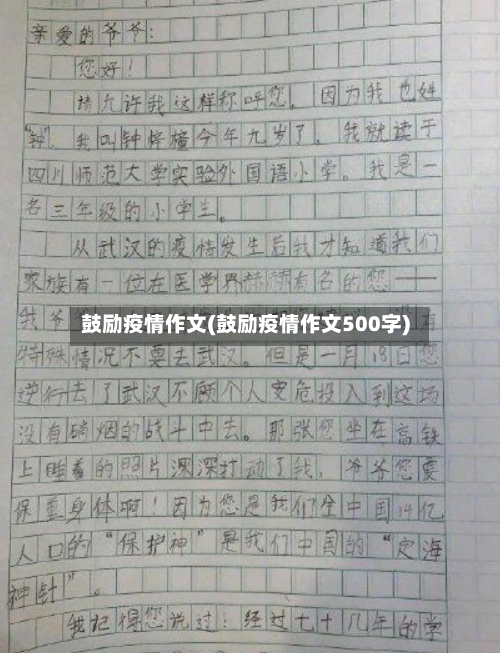 亲爱的爷爷：
您好！
请允许我这样称呼您，因为我也姓
“钟”。我叫钟梓橦今年九岁了，我就读于
四川师范大学实验外国语小学。我是一
名三年级的小学生。
从武汉的疫情发生后我才知道我们
家族有一位在医学界赫赫有名的您——
我爷
有
鼓励疫情作文(鼓励疫情作文500字)
特殊情况不要去武汉。但是一月18日您
逆行去了武汉不顾个人安危投入到这场
没有硝烟的战斗中去。那张您坐在高铁
上睡着的照片深深打动了我，爷爷您要
保重身体啊！因为您是我们全中国14亿
人口的“保护神”是我们中国的“定海
神针”。
我记得您说过：经过七十几年的学